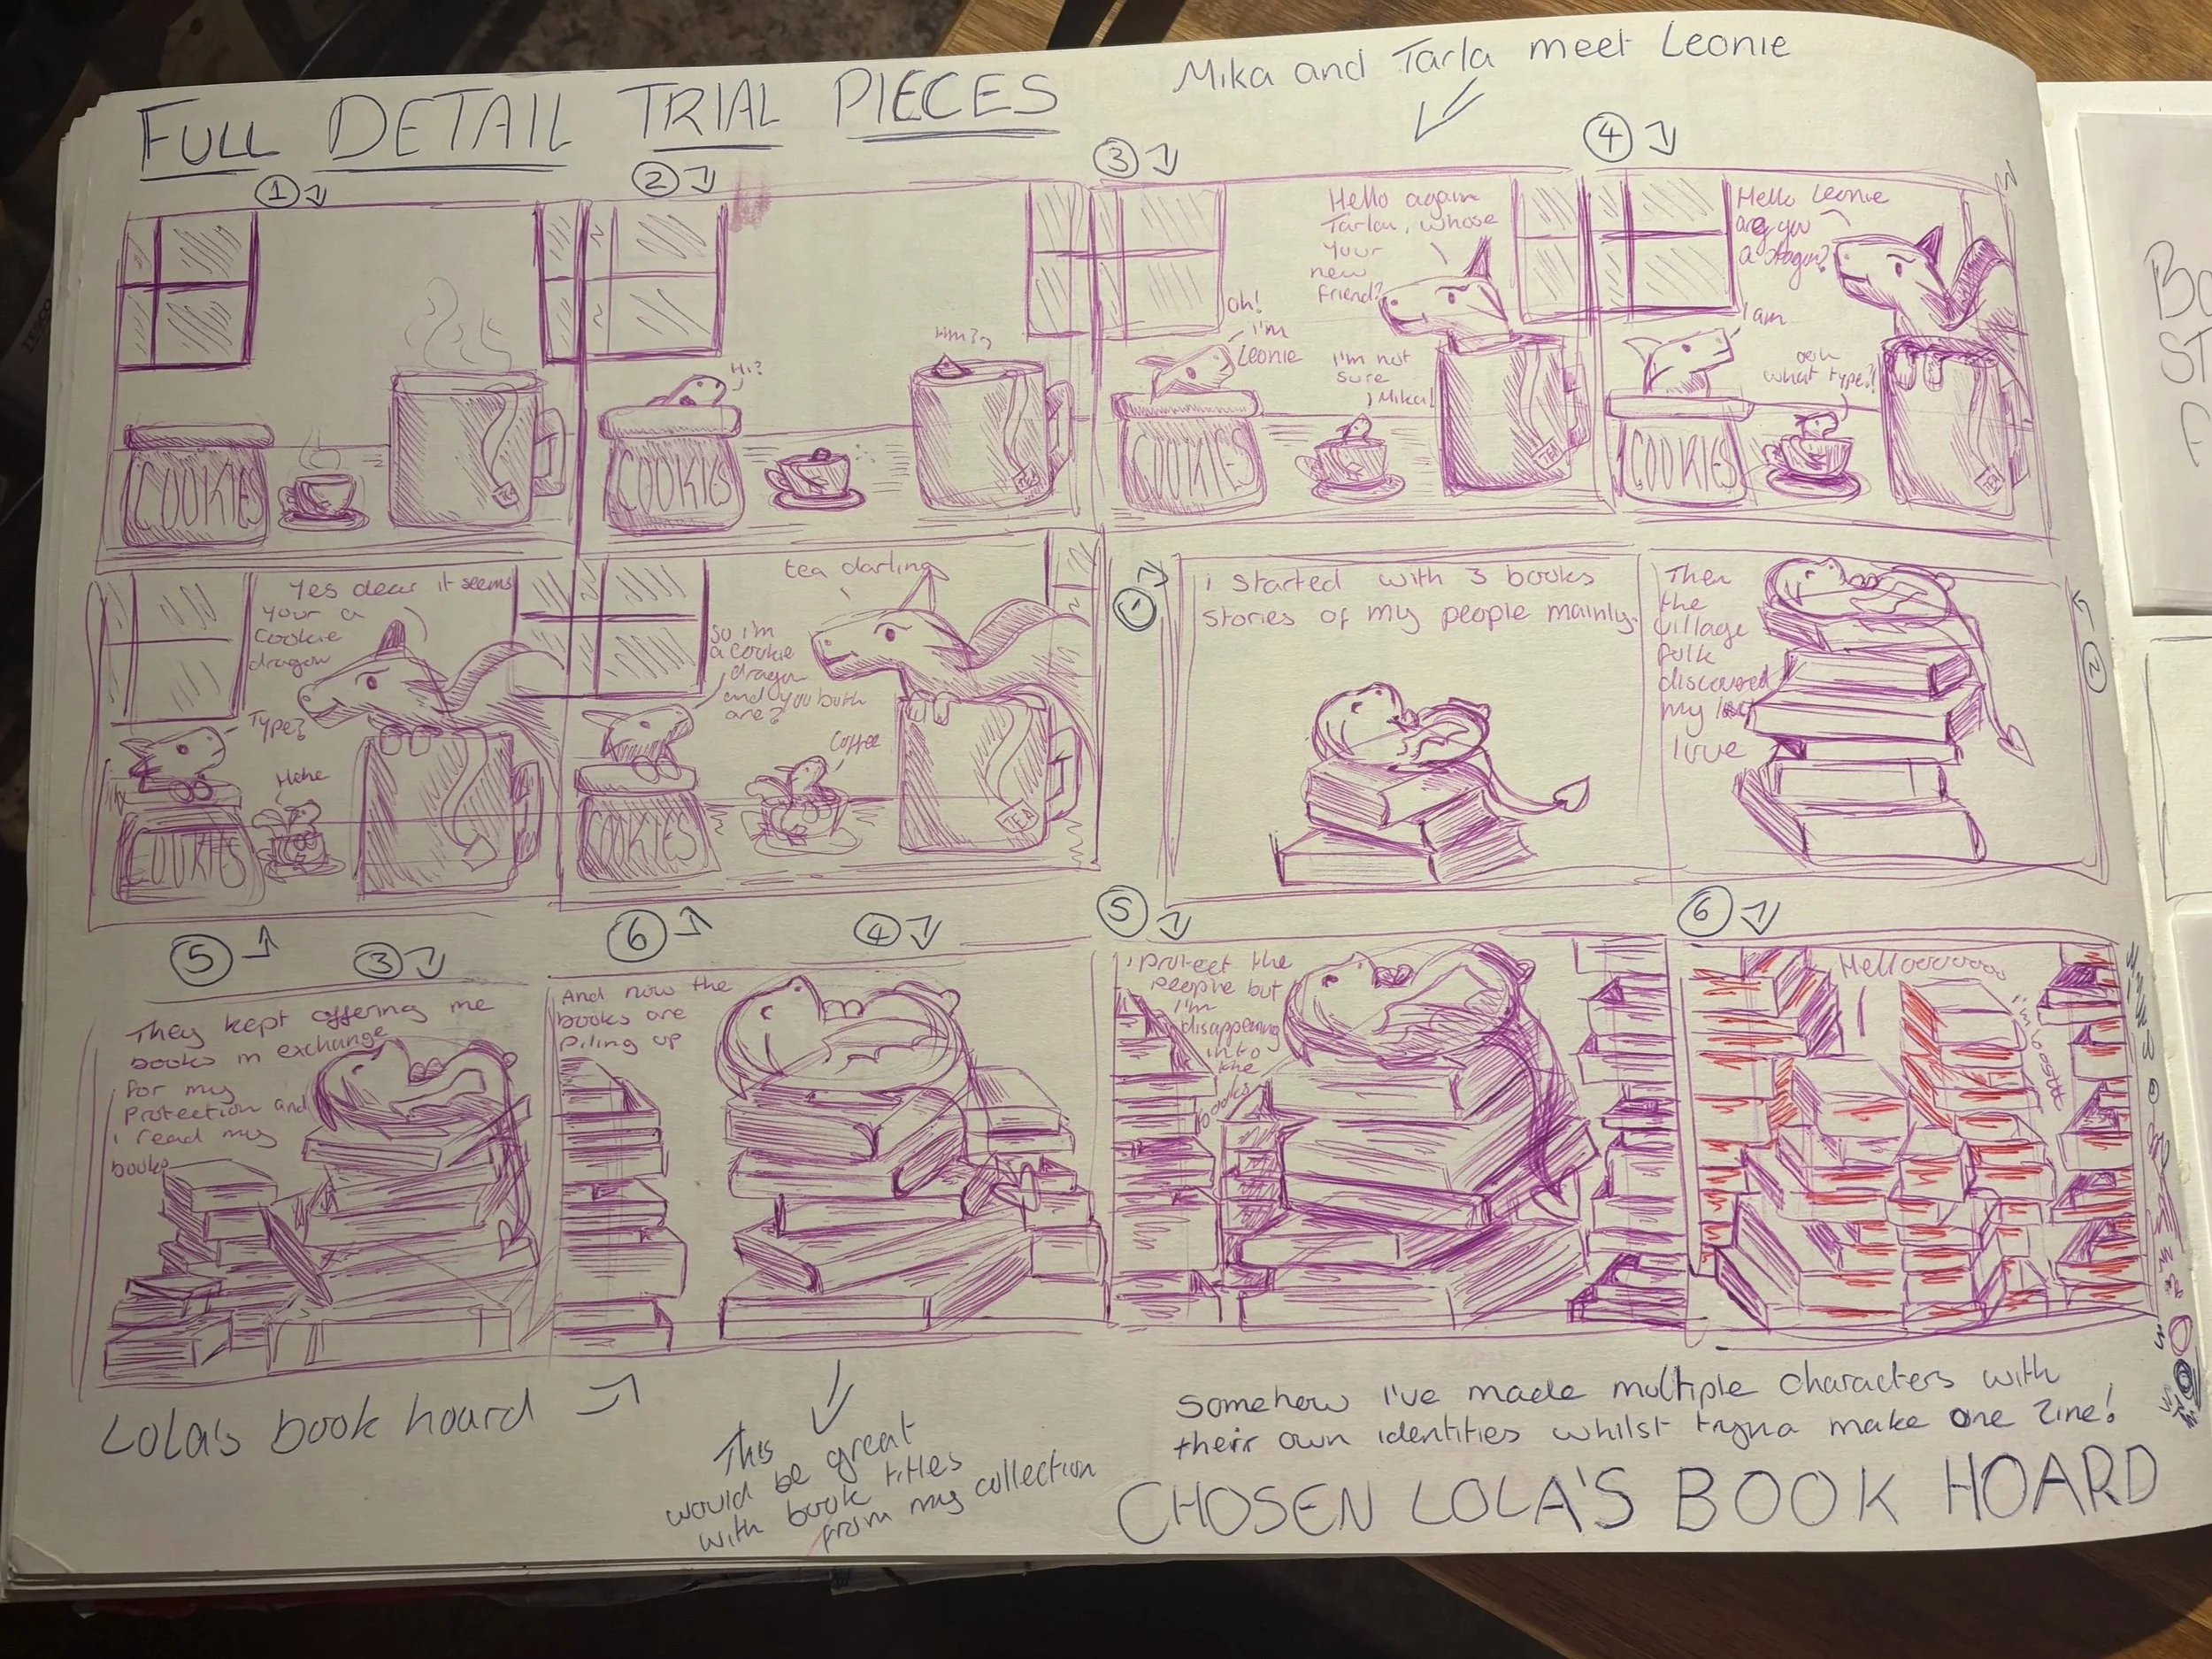 FULL DETAIL TRIAL PIECES
Mika and Tarla meet Leonie
1
COOKIES
TEA
2
Hi?
Hm?
COOKIES
TEA
3
Hello again
Tarla, whose
your
new
friend?
Oh!
I'm
Leonie
I'm not
sure
Mika!
COOKIES
TEA
4
Hello Leonie
are you
a dragon?
I am
ooh
what type?!
COOKIES
TEA
Yes dear it seems
your a
cookie
dragon
Type?
Hehe
COOKIES
5
tea darling
so i'm
a cookie
dragon
and you both
are?
Coffee
COOKIES
TEA
6
1
i started with 3 books
stories of my people mainly.
2
Then
the
village
folk
discovered
my
love
3
They kept offering me
books in exchange
for my
protection and
i read my
books
4
And now the
books are
piling up
5
i protect the
people but
I'm
disappearing
into
the
books
6
Hellooooooo
Lola's book hoard
This
would be great
with book titles
from my collection
Somehow I've made multiple characters with
their own identities whilst tryna make one zine!
CHOSEN LOLA'S BOOK HOARD
TESCO